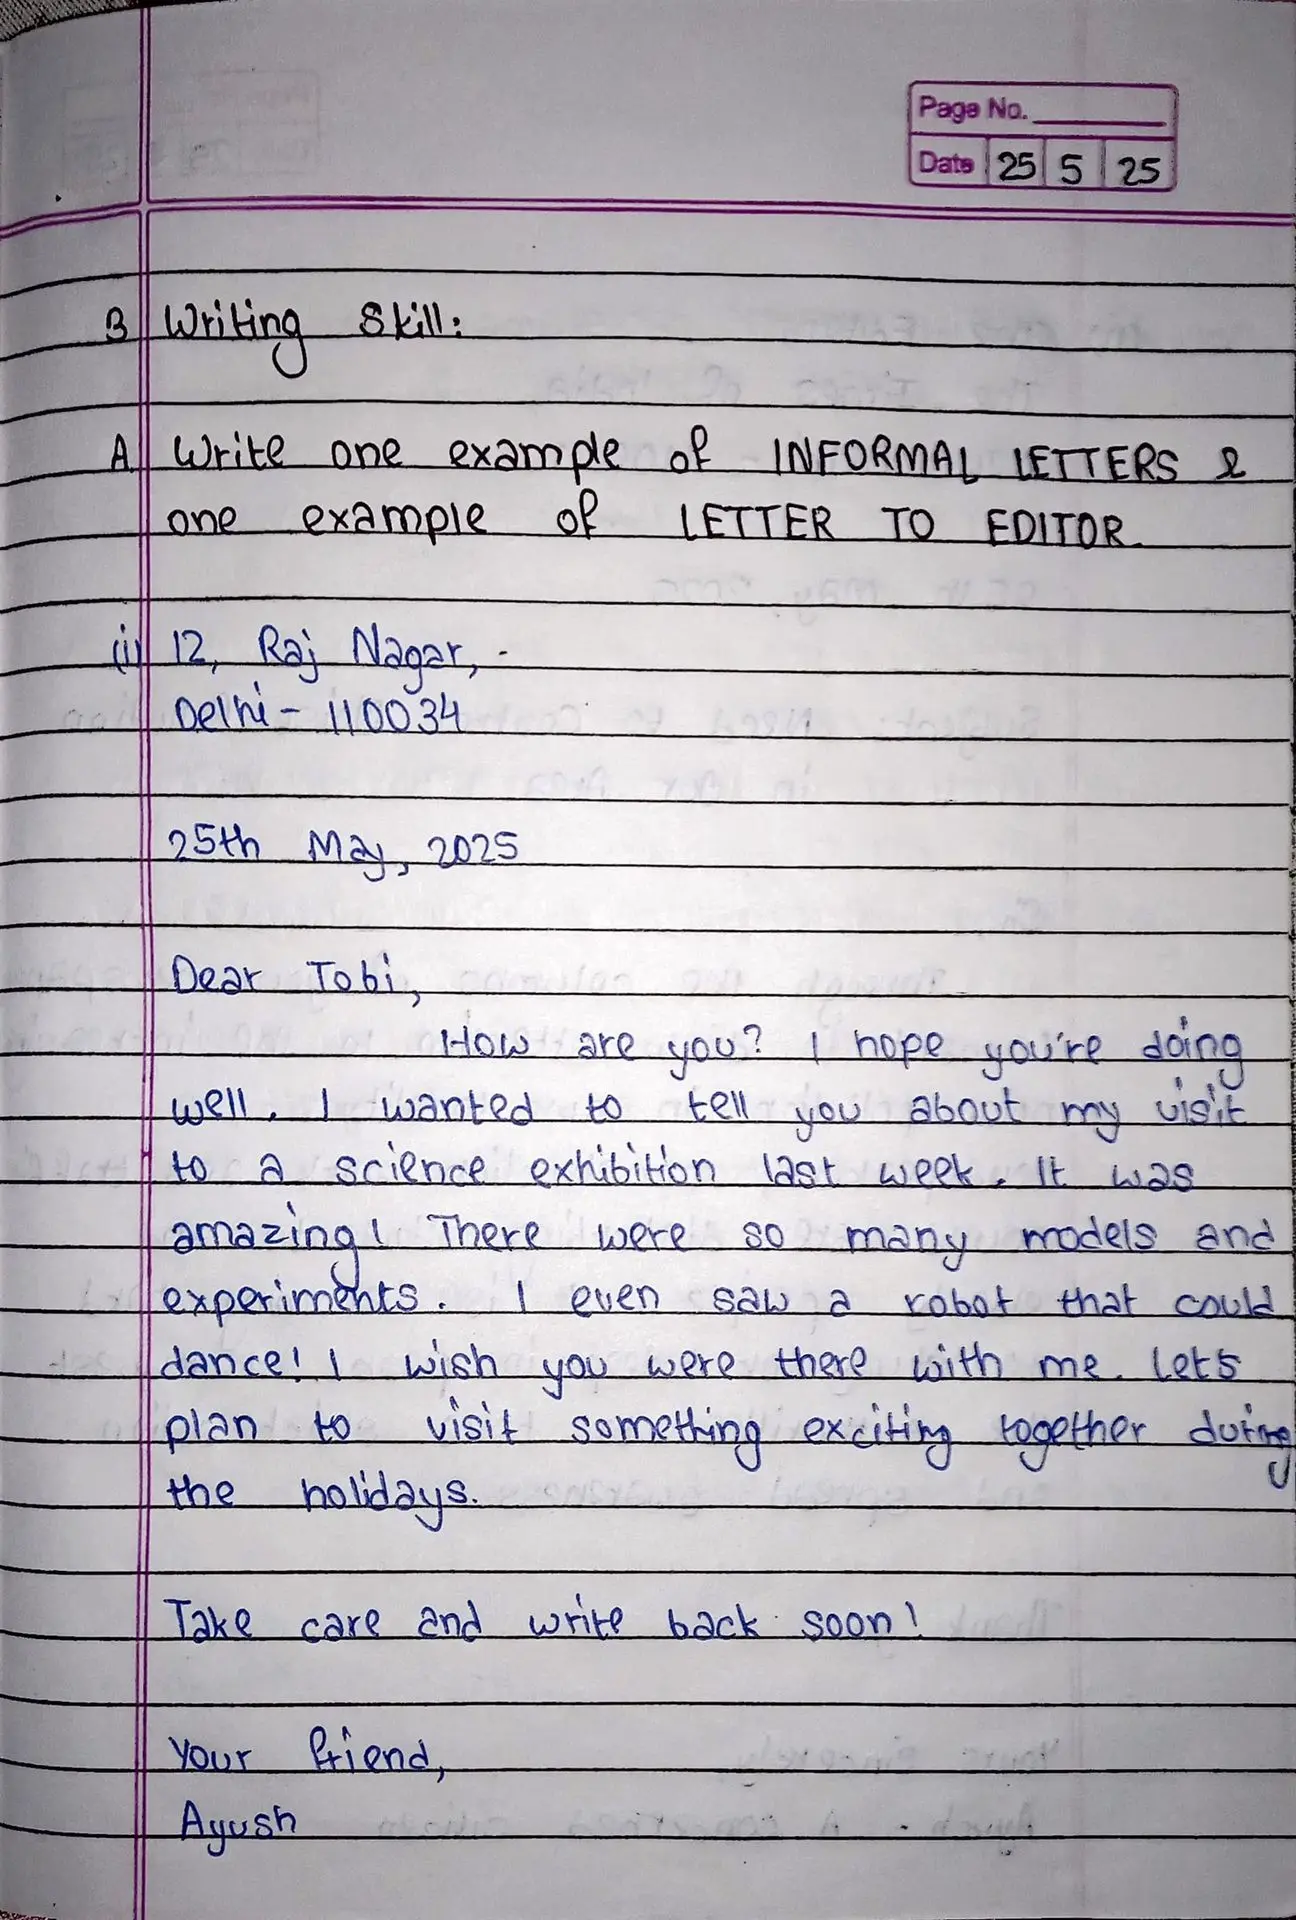 Page No.
Date 25 5 25
B Writing Skill:
A Write one example of INFORMAL LETTERS &
one example of LETTER TO EDITOR.
(i) 12, Raj Nagar,
Delhi - 110034
25th May, 2025
Dear Tobi,
How are you? I hope you're doing
well. I wanted to tell you about my visit
to a science exhibition last week. It was
amazing! There were so many models and
experiments. I even saw a robot that could
dance! I wish you were there with me. Let's
plan to visit something exciting together during
the holidays.
Take care and write back soon!
Your friend,
Ayush